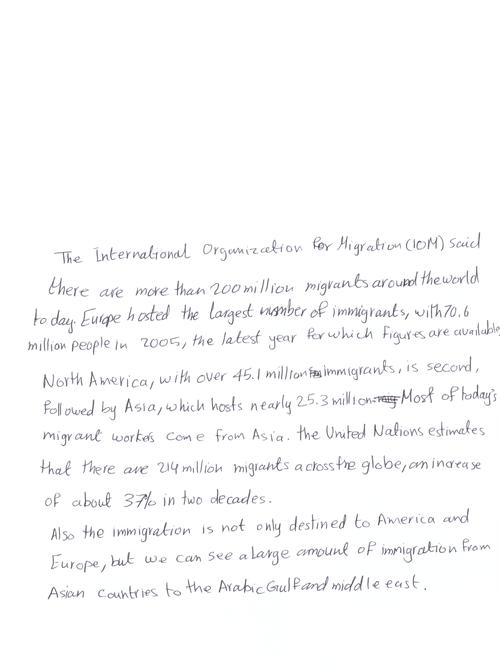 The International Organization for Migration (IOM) said
there are more than 200 million migrants around the world
today. Europe hosted the largest number of immigrants, with 70.6
million people in 2005, the latest year for which figures are available
North America, with over 45.1 million immigrants, is second,
followed by Asia, which hosts nearly 25.3 million. Most of today's
migrant workers come from Asia. the United Nations estimates
that there are 214 million migrants across the globe, an increase
of about 37% in two decades.
Also the immigration is not only destined to America and
Europe, but we can see a large amount of immigration from
Asian countries to the Arabic Gulf and middle east.